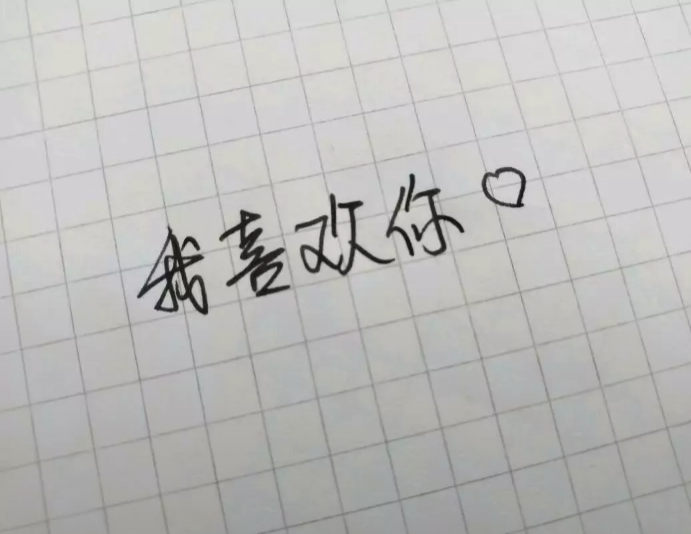 我喜欢你♡